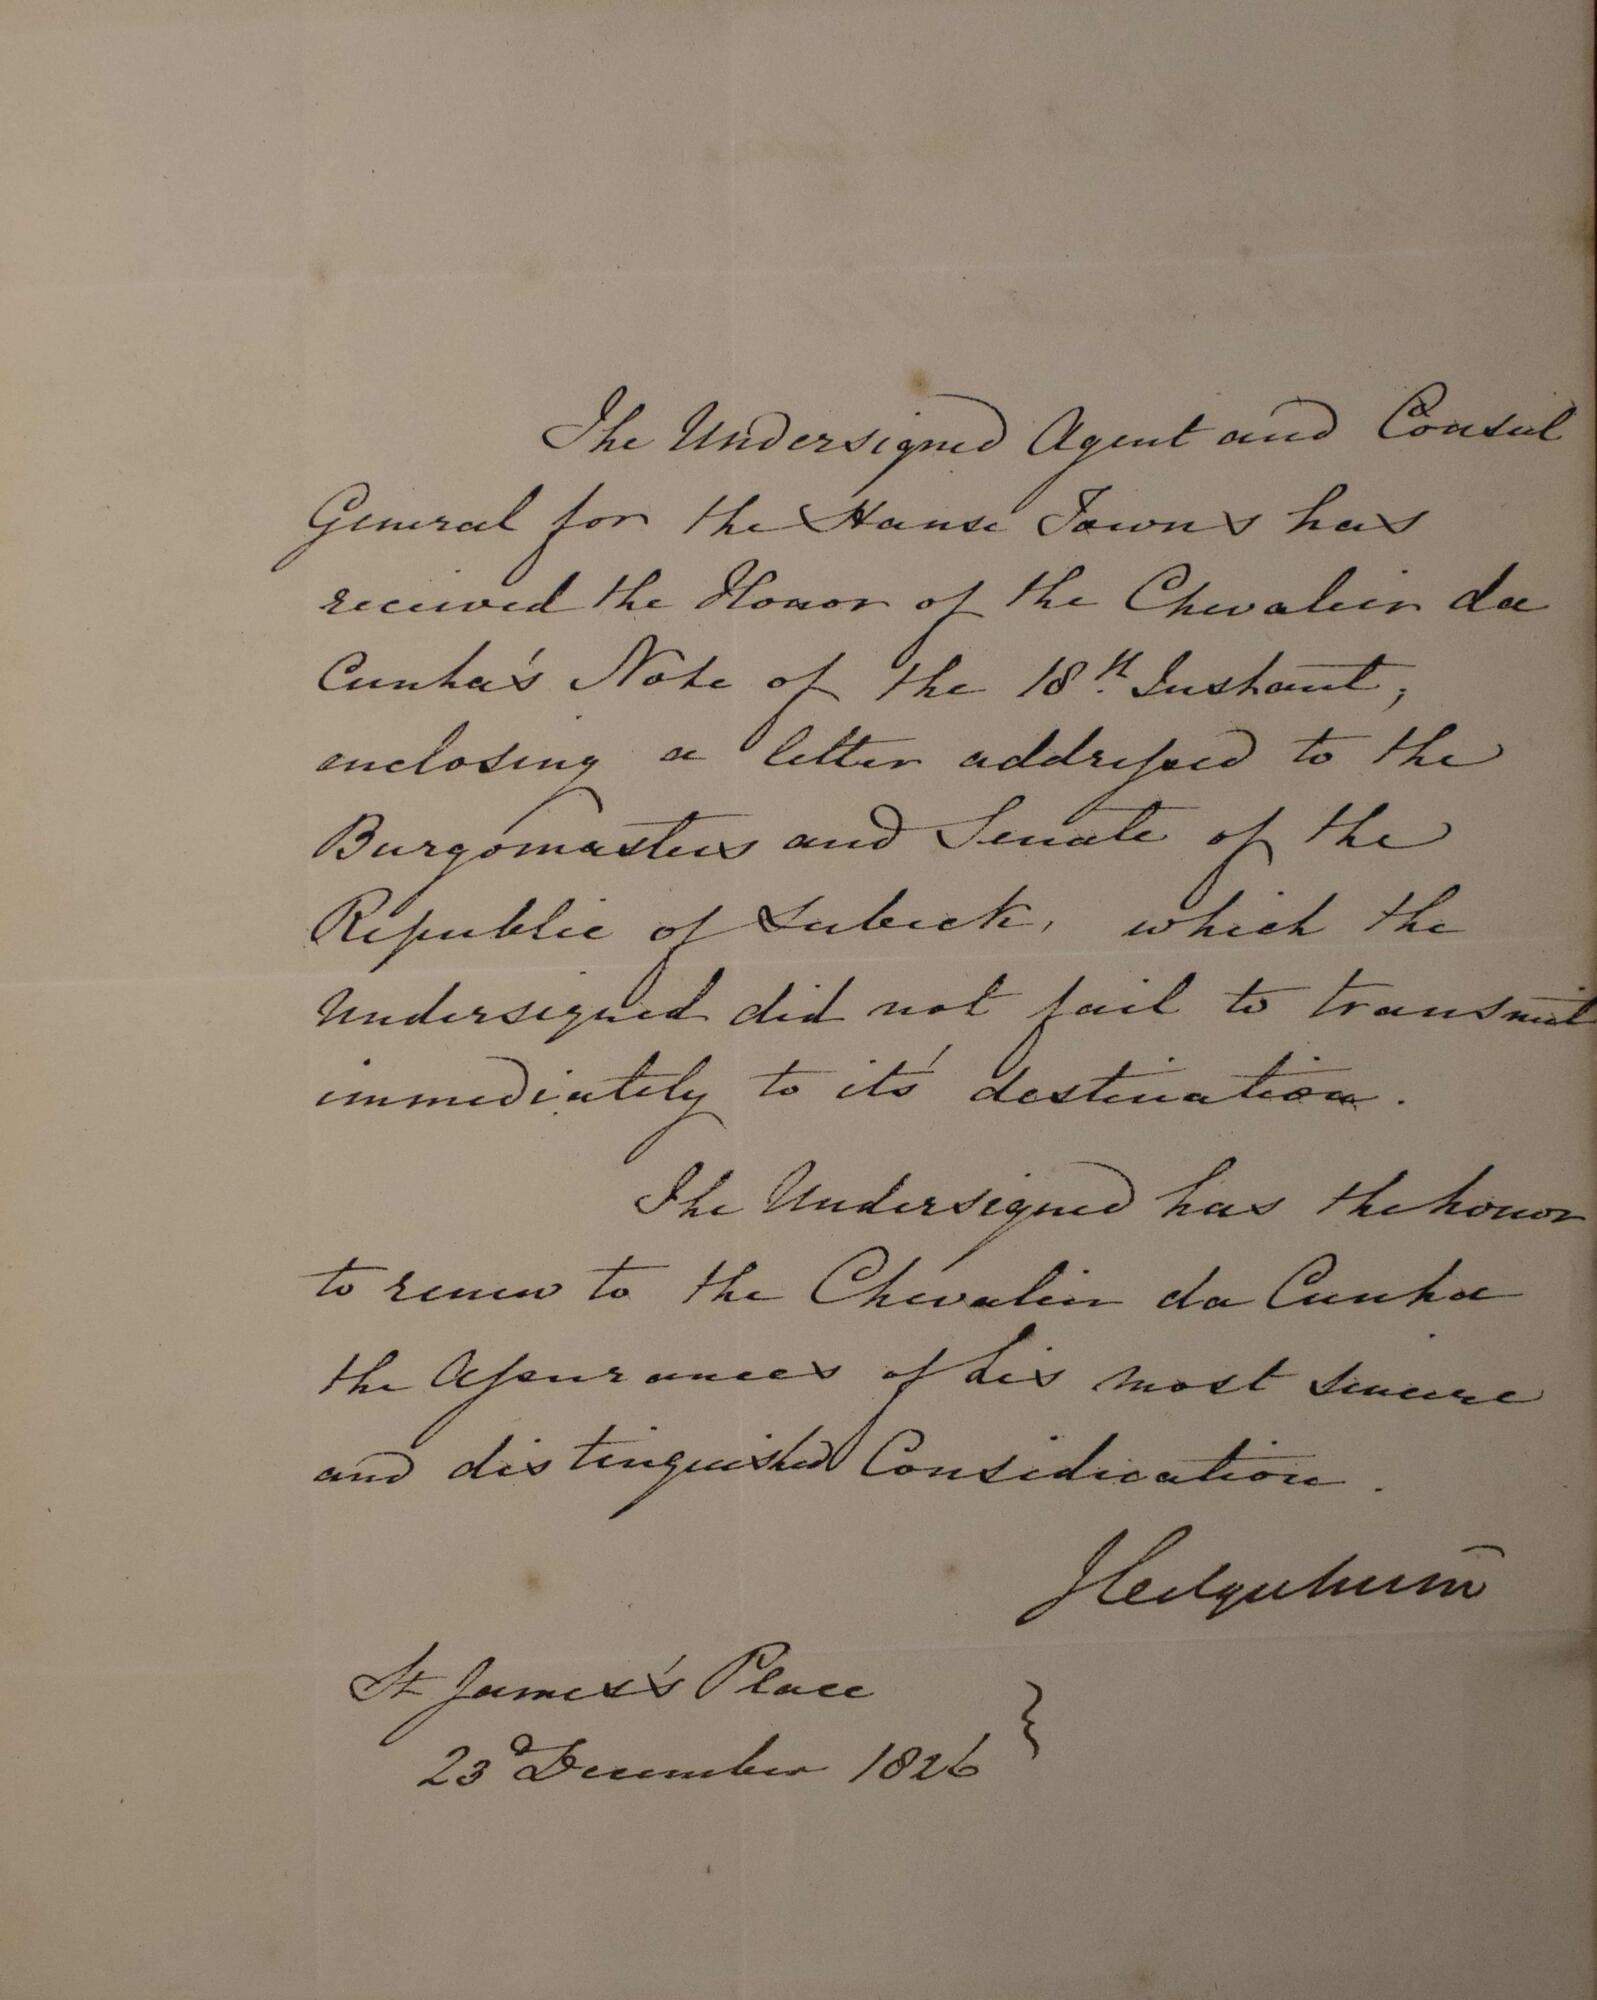 The Undersigned Agent and Consul
General for the Hanse Towns has
received the Honor of the Chevalier da
Cunha's Note of the 18th Instant,
enclosing a letter addressed to the
Burgomasters and Senate of the
Republic of Lubeck, which the
Undersigned did not fail to transmit
immediately to it's destination.
The Undersigned has the honor
to renew to the Chevalier da Cunha
the Assurances of his most sincere
and distinguished Consideration.
St James's Place
23d December 1826